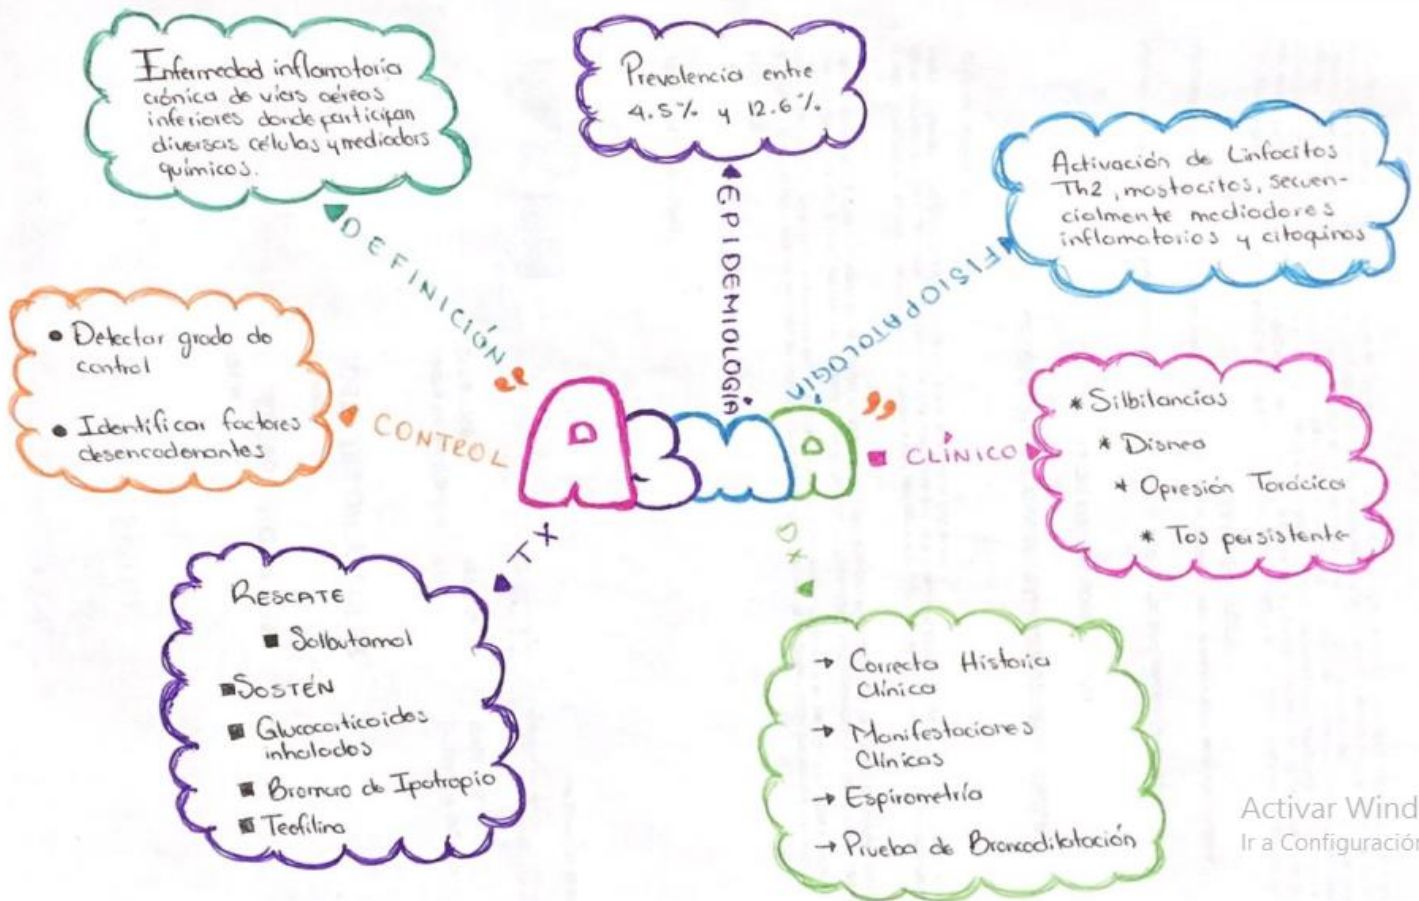 Enfermedad inflamatoria
crónica de vías aéreas
inferiores donde participan
diversas células y mediadors
químicos.
DEFINICIÓN
Prevalencia entre
4.5% y 12.6%
EPIDEMIOLOGÍA
Activación de Linfocitos
Th2, mastocitos, secuen-
cialmente mediadores
inflamatorios y citoquinas
FISIOPATOLOGÍA
• Detectar grado de
control
• Identificar factores
desencadenantes
CONTROL
"ASMA"
CLÍNICO
* Silbilancias
* Disnea
* Opresión Torácica
* Tos persistente
TX
RESCATE
■ Salbutamol
■ SOSTÉN
■ Glucocorticoides
inhalados
■ Bromuro de Ipatropio
■ Teofilina
DX
→ Correcta Historia
Clínica
→ Manifestaciones
Clínicas
→ Espirometría
→ Prueba de Broncodilatación
Activar Wind
Ir a Configuración